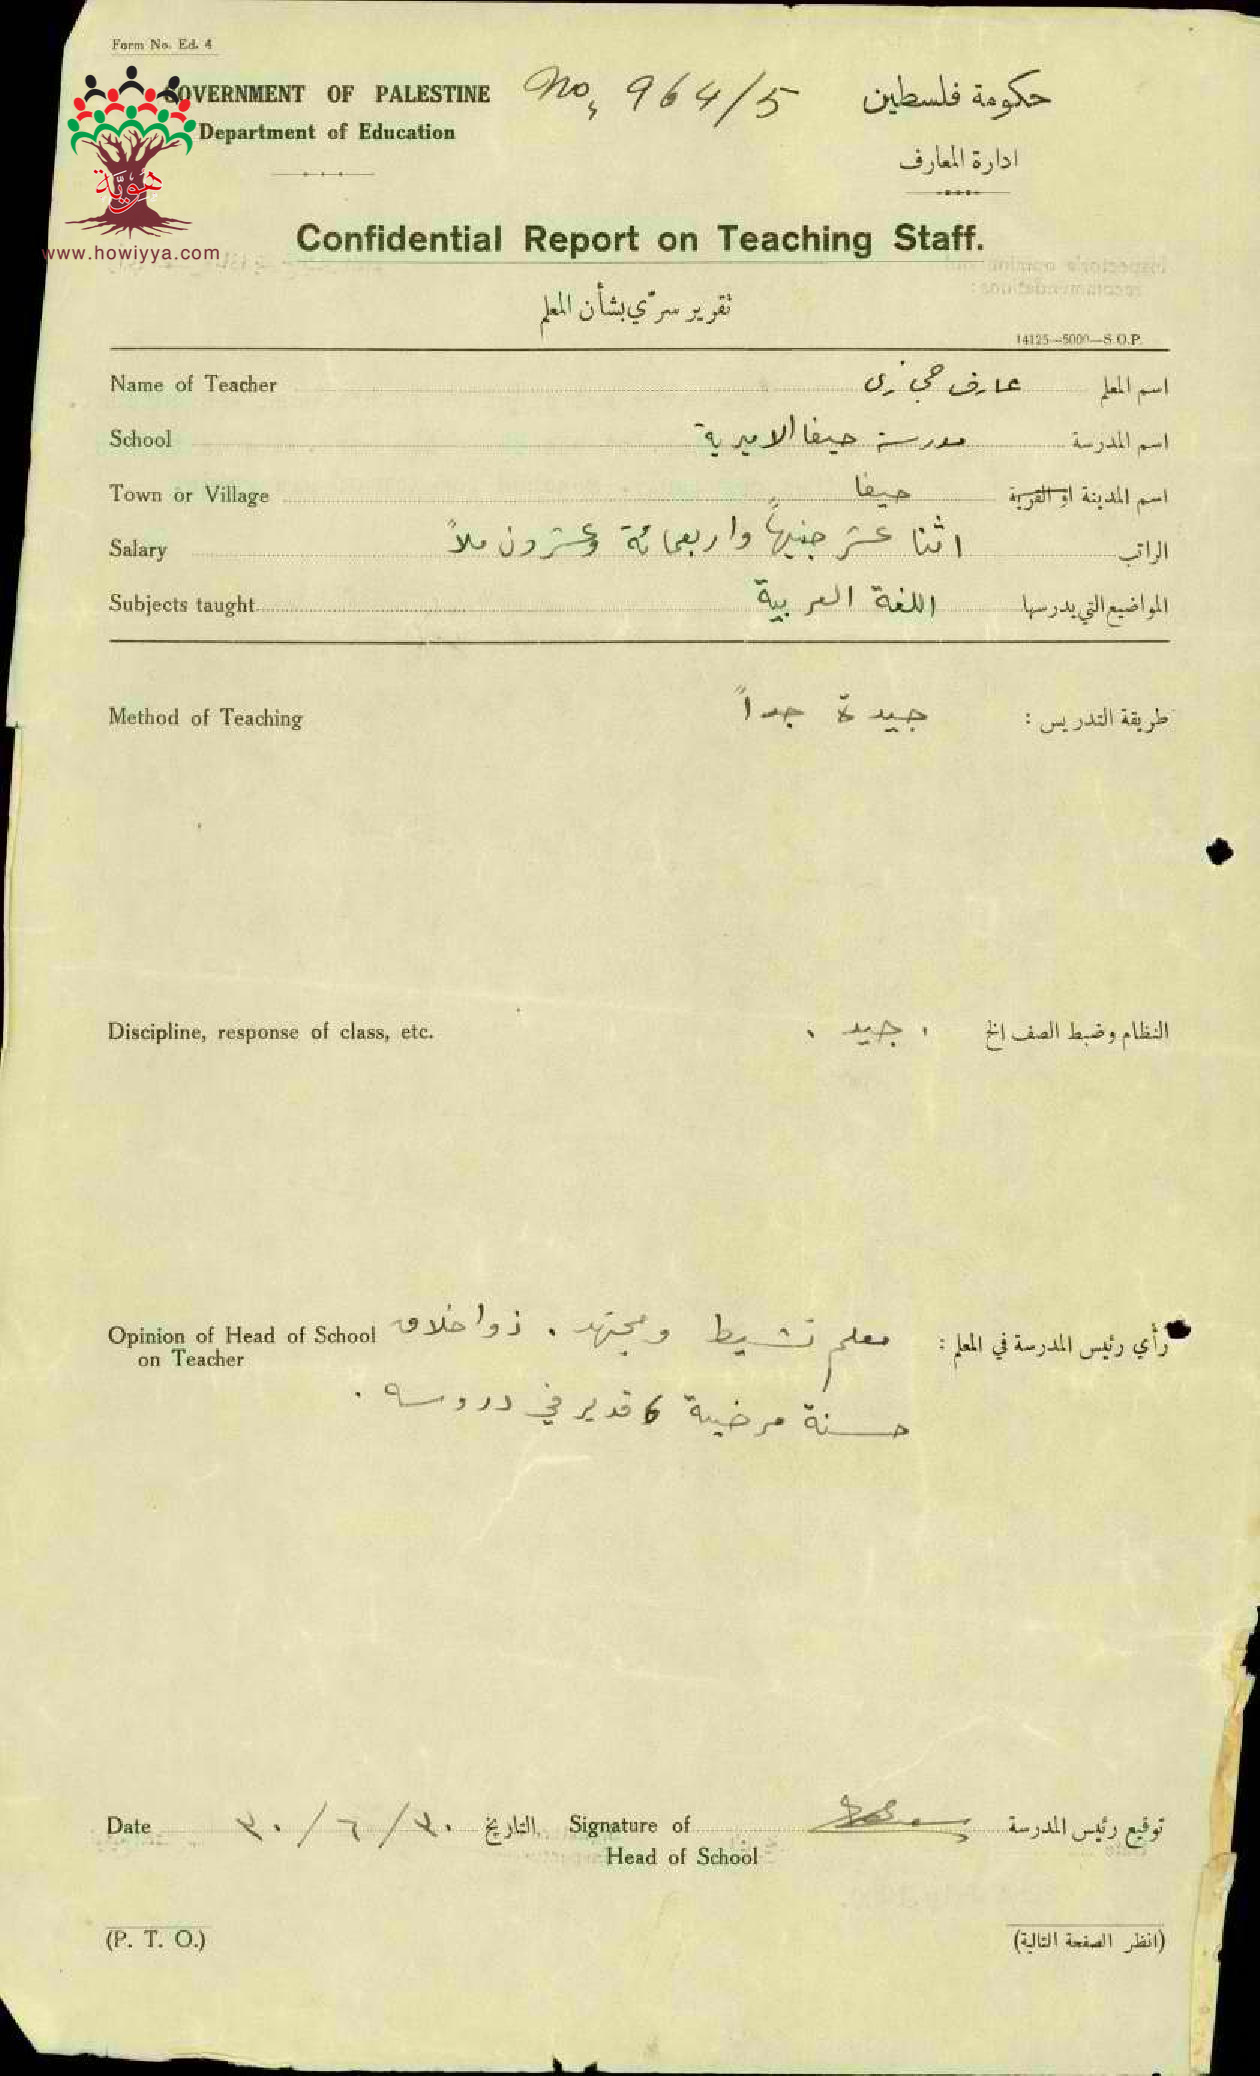 Form No. Ed. 4
GOVERNMENT OF PALESTINE
Department of Education
No, 964/5
حكومة فلسطين
ادارة المعارف
هوية
www.howiyya.com
Confidential Report on Teaching Staff.
تقرير سرّي بشأن المعلم
14125—5000—S.O.P.
Name of Teacher عارف حجازي اسم المعلم
School مدرسة حيفا الاميرية اسم المدرسة
Town or Village حيفا اسم المدينة او القرية
Salary اثنا عشر جنيهاً واربعمائة وعشرون ملاً الراتب
Subjects taught اللغة العربية المواضيع التي يدرسها
Method of Teaching جيدة جداً طريقة التدريس :
Discipline, response of class, etc. . جيد . النظام وضبط الصف الخ
Opinion of Head of School معلم نشيط ومجتهد . ذو اخلاق رأي رئيس المدرسة في المعلم :
on Teacher
حسنة مرضية ، قدير في دروسه .
Date ٣٠/٦/٣٠ التاريخ Signature of توقيع رئيس المدرسة
Head of School
(P. T. O.) (انظر الصفحة التالية)